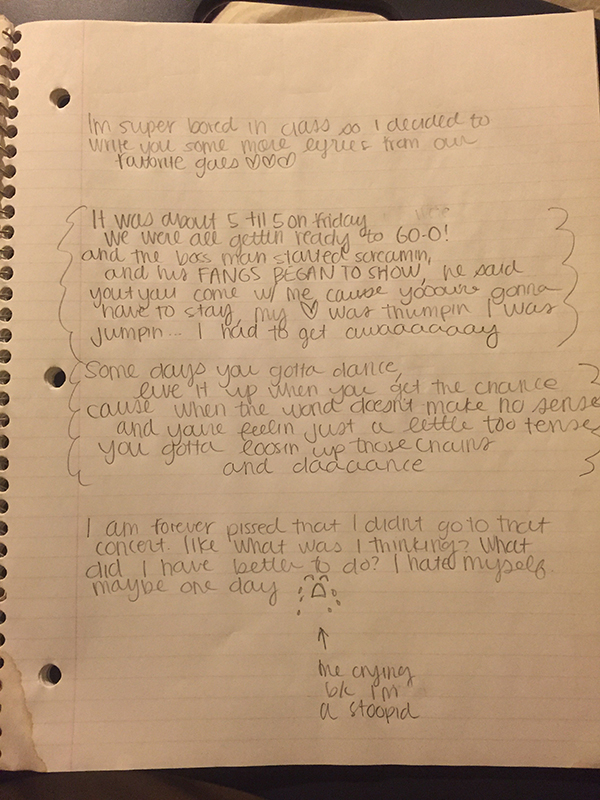 Im super bored in class so I decided to
write you some more lyrics from our
favorite gals ♡♡♡
It was about 5 til 5 on friday
we were all gettin ready to GO-O!
and the boss man started screamin,
and his FANGS BEGAN TO SHOW, he said
you you come w/ me cause yooour gonna
have to stay, my ♡ was thumpin I was
Jumpin... I had to get awaaaaaaay
Some days you gotta dance,
live it up when you get the chance
cause when the world doesn't make no sense
and youre feelin just a little too tense
you gotta loosin up those chains
and daaaance
I am forever pissed that I didnt go to that
concert. like what was I thinking? What
did I have better to do? I hate myself.
maybe one day
me crying
b/c I'm
a stoopid